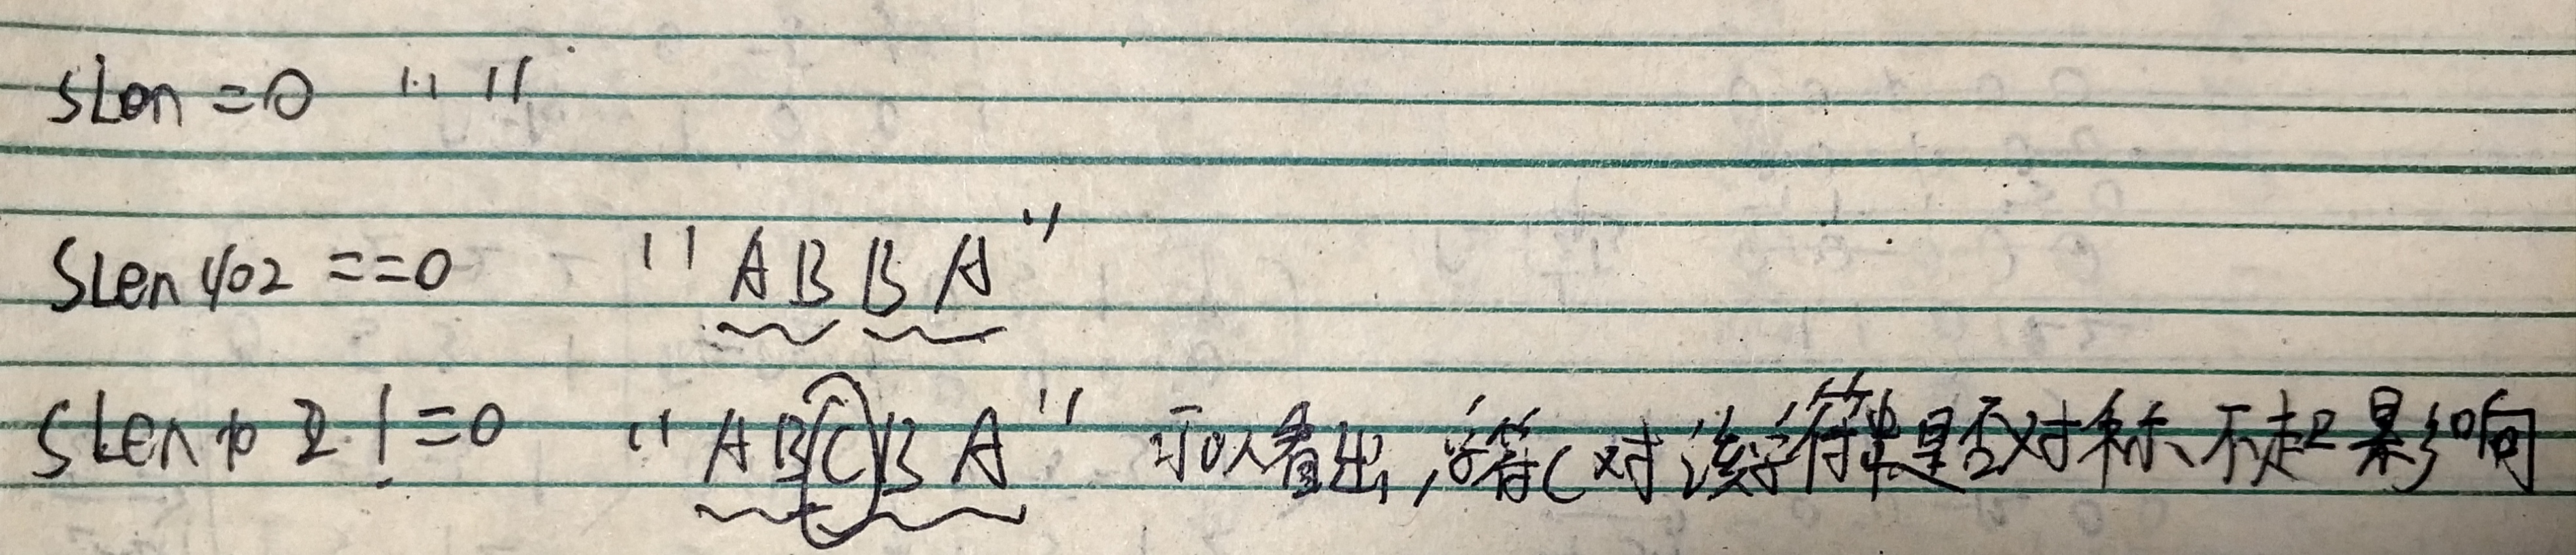 sLen = 0 " "
SLen % 2 == 0 " A B B A "
SLen % 2 != 0 " A B C B A " 可以看出,字符C对该字符串是否对称不起影响